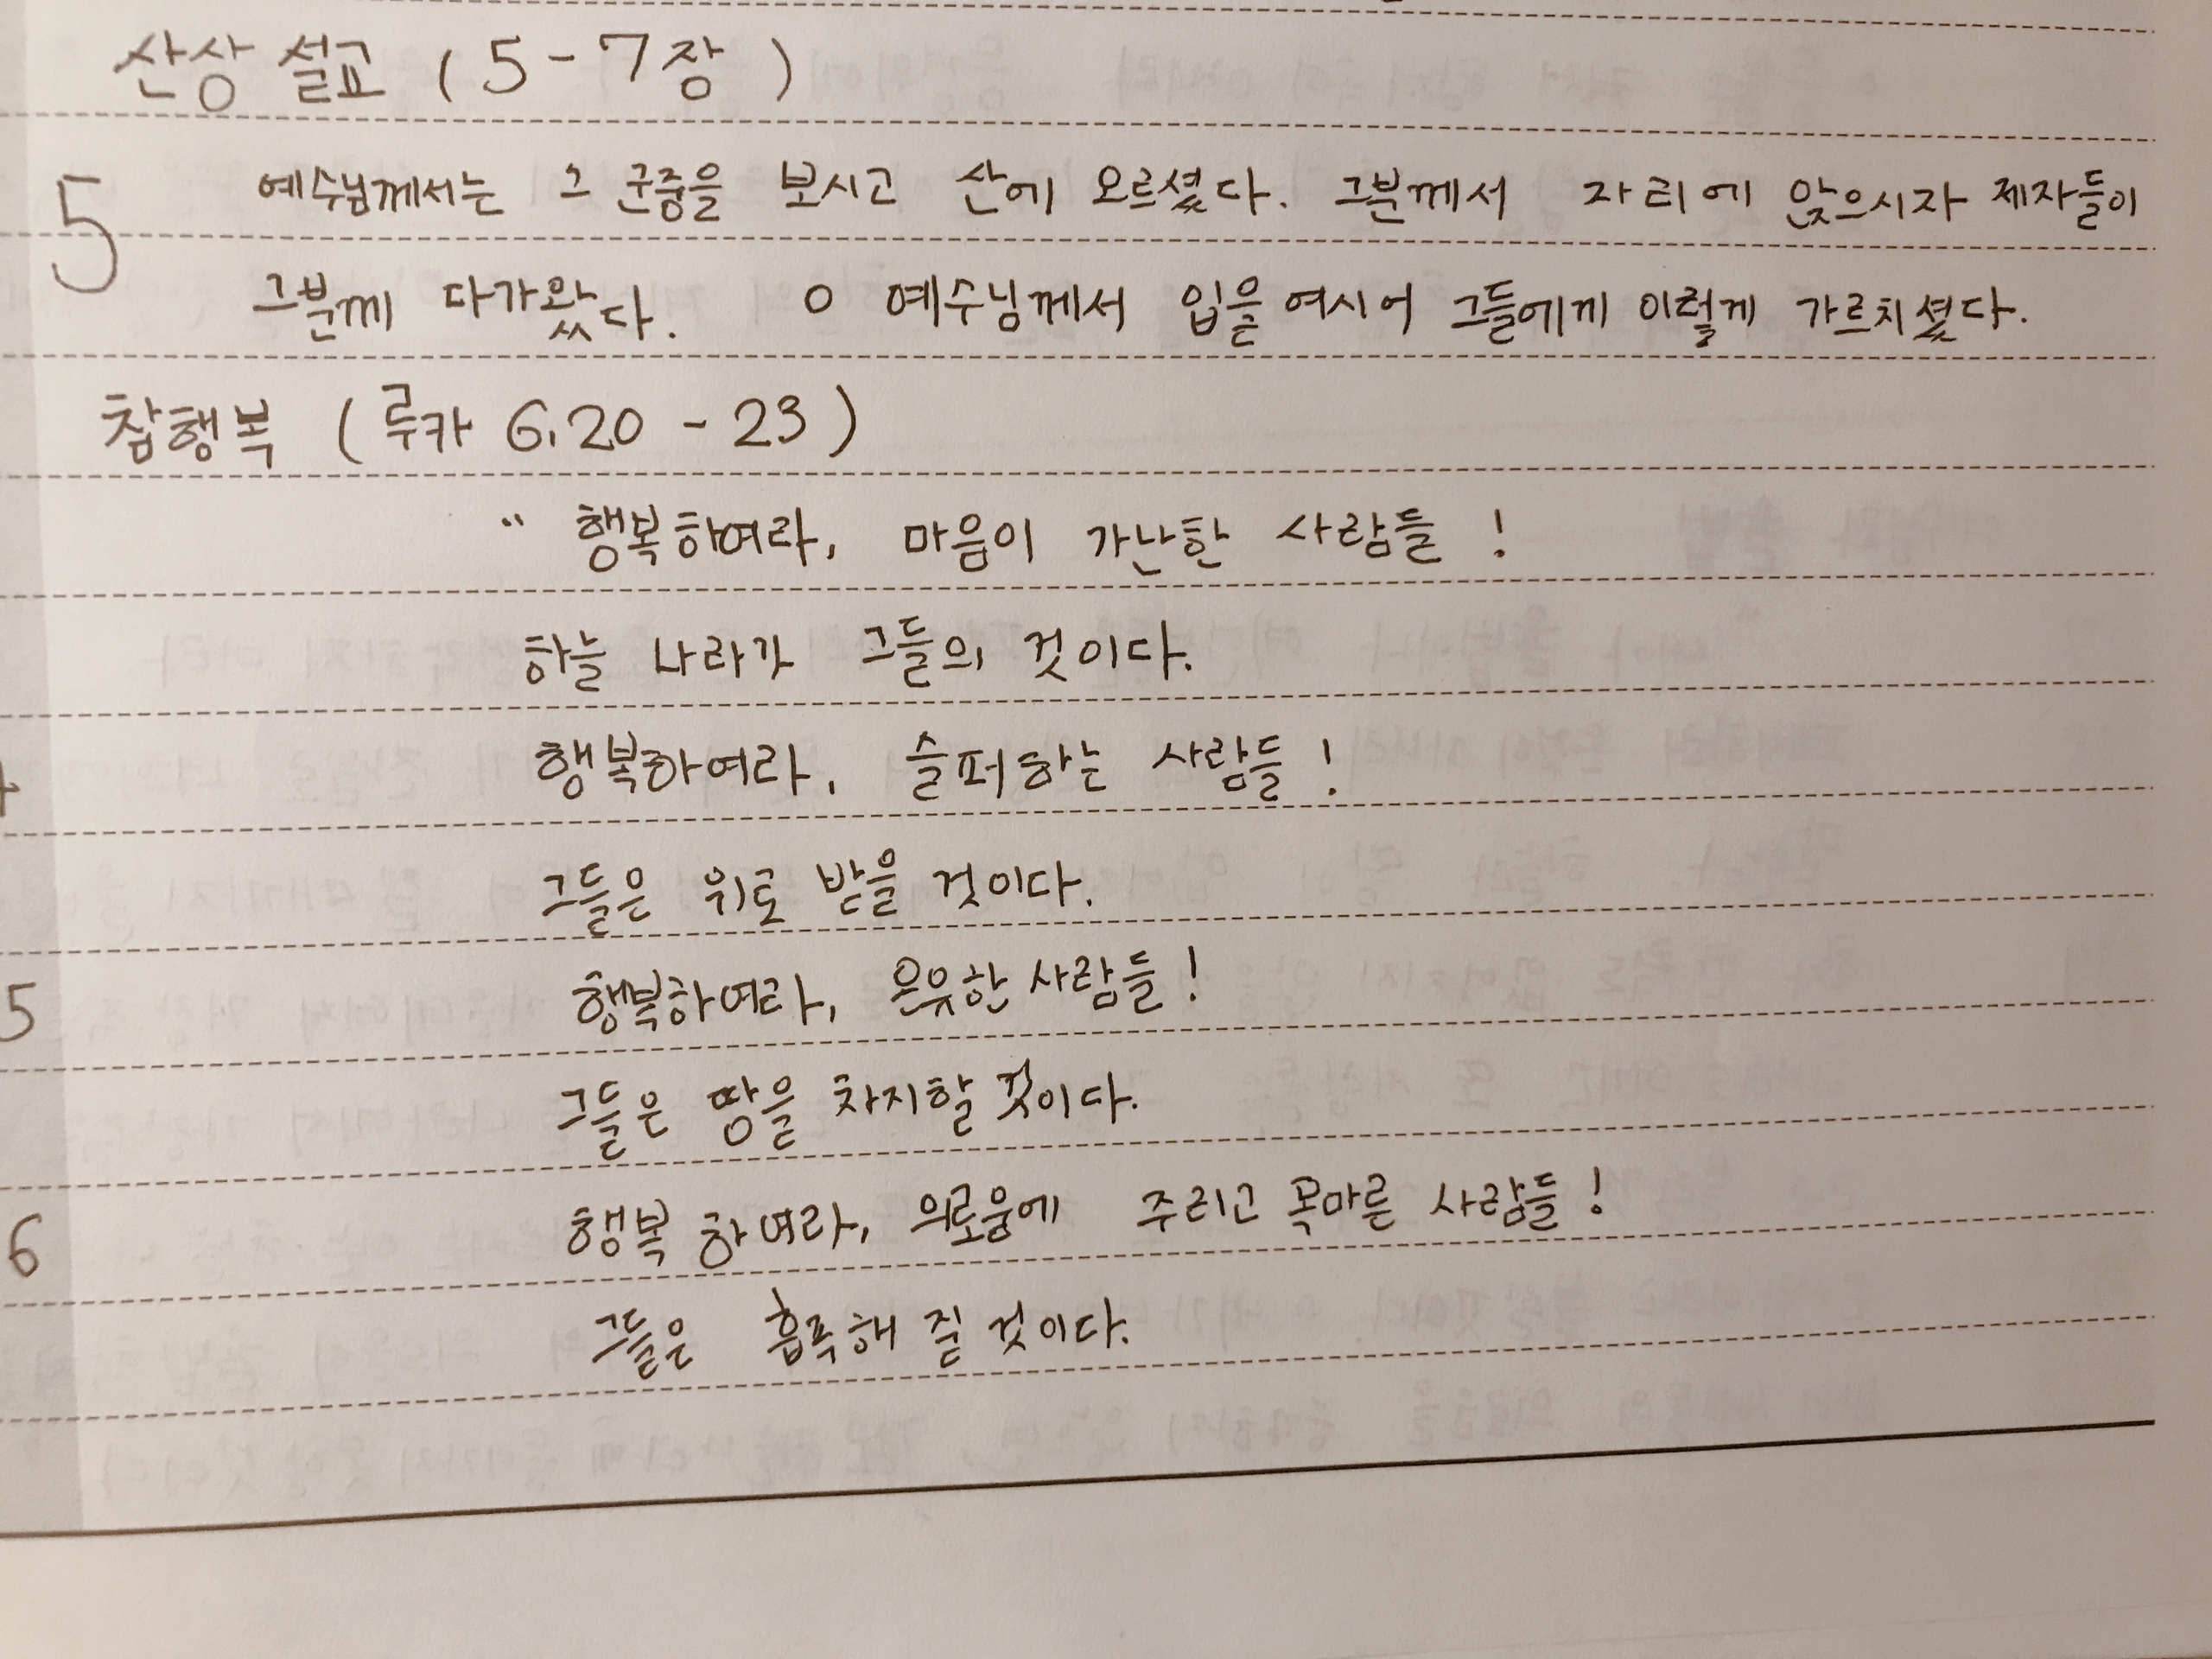 산상 설교 ( 5 - 7 장 )
5 예수님께서는 그 군중을 보시고 산에 오르셨다. 그분께서 자리에 앉으시자 제자들이
그분께 다가왔다. O 예수님께서 입을 여시어 그들에게 이렇게 가르치셨다.
참행복 ( 루카 6,20 - 23 )
“ 행복하여라, 마음이 가난한 사람들 !
하늘 나라가 그들의 것이다.
행복하여라, 슬퍼하는 사람들 !
그들은 위로 받을 것이다.
5 행복하여라, 온유한 사람들 !
그들은 땅을 차지할 것이다.
6 행복 하여라, 의로움에 주리고 목마른 사람들 !
그들은 흡족해 질 것이다.